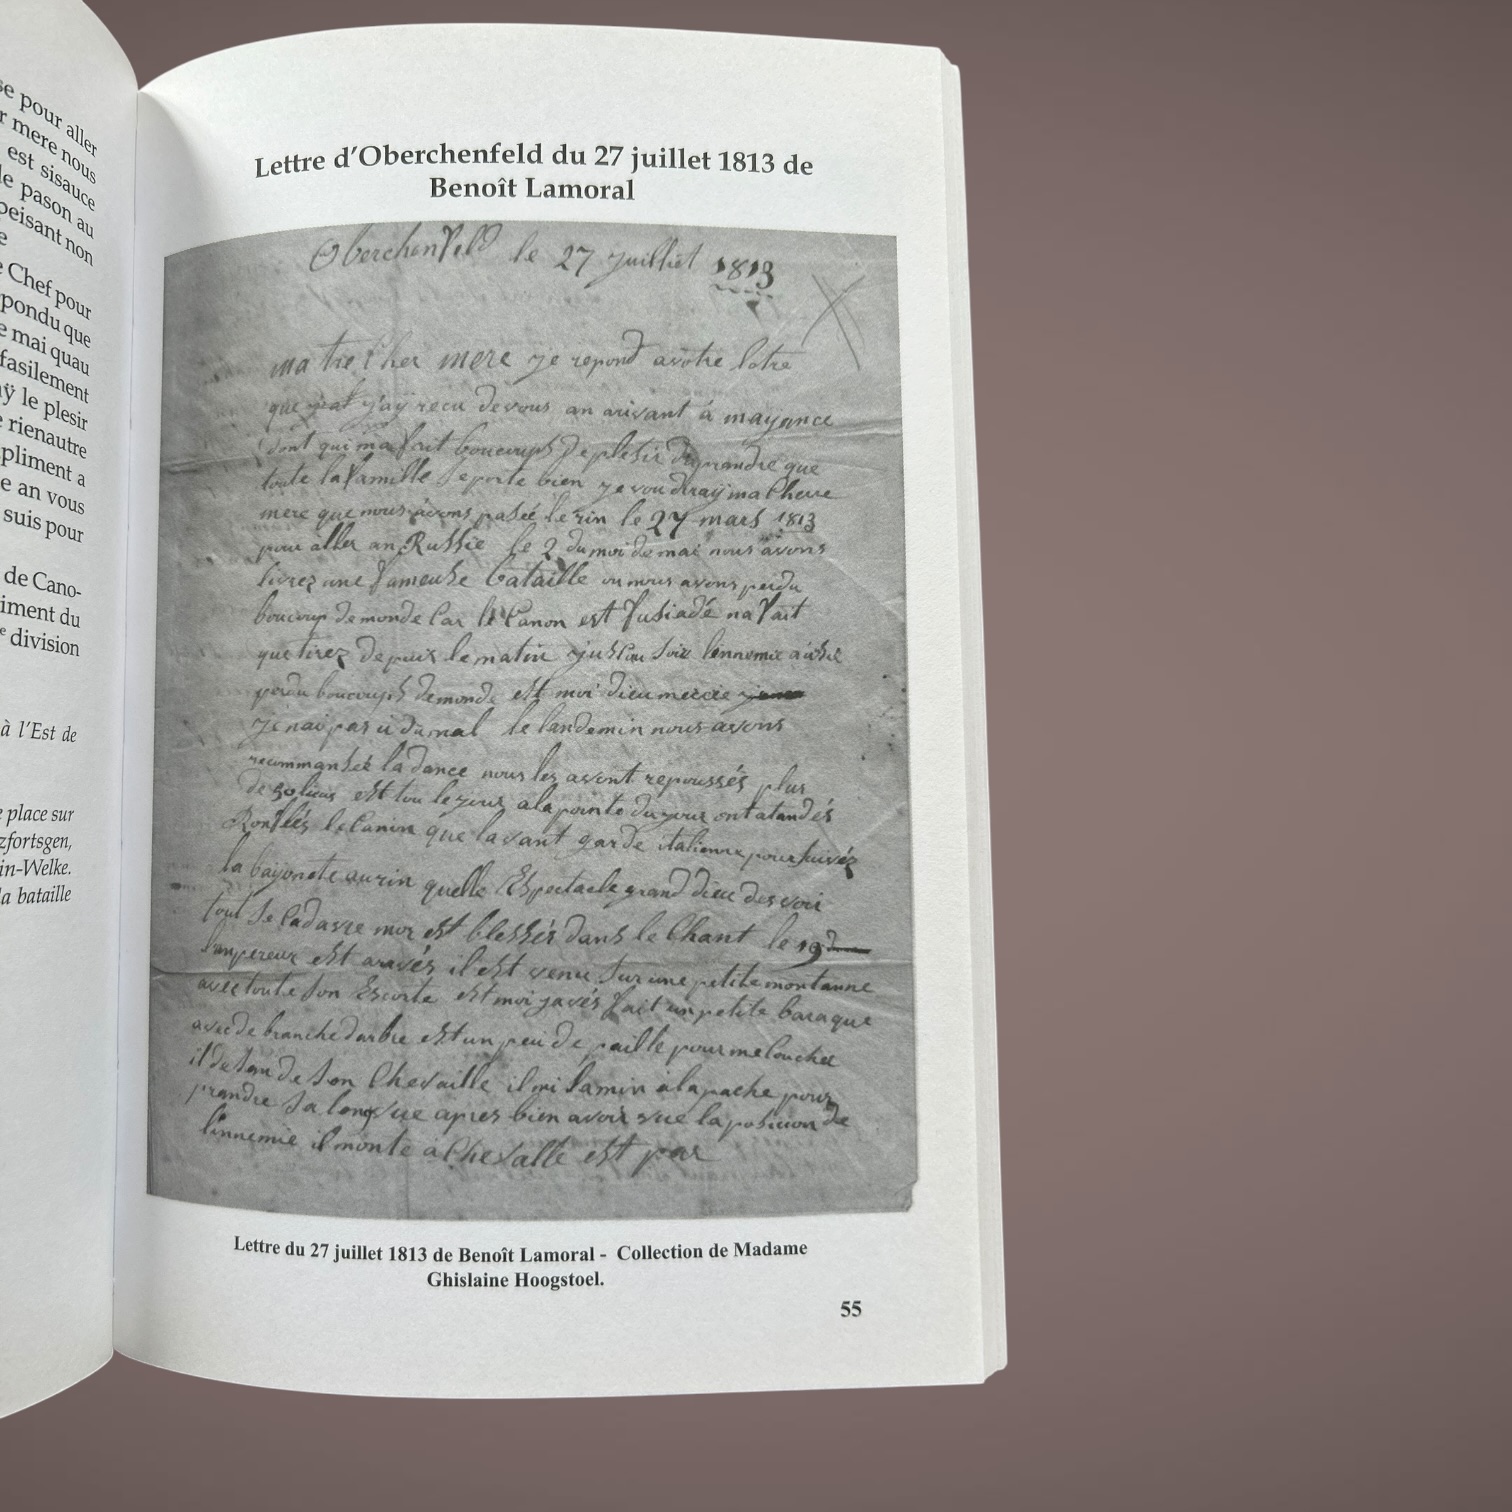 se pour aller
r mere nous
est sisauce
le pason au
peisant non
e
e Chef pour
pondu que
e mai quau
fasilement
aÿ le plesir
e rienautre
pliment a
e an vous
suis pour
de Cano-
iment du
e division
à l'Est de
e place sur
zfortsgen,
in-Welke.
la bataille
Lettre d'Oberchenfeld du 27 juillet 1813 de
Benoît Lamoral
Oberchenfeld le 27 juilliet 1813
ma tres cher mere je repond avotre lotre
que j'aÿ recu devous an arivant á mayance
dont qui ma fait boucouph de plesir daprandre que
toute la famille se porte bien je vou diraÿ ma cherre
mere que nous avons pasée le rin le 27 mars 1813
pour aller an Russie le 2 du moi de mai nous avons
livrez une fameuse bataille ou nous avons perdu
boucoup de monde car le canon est fusiadé na fait
que tirez depuix le matin jusquau soir lennemie aúsié
perdu boucouph demonde est moi dieu mercie
je nai pas u du mal le landemin nous avons
recommansée la dance nous les avont repoussés plus
de 30 lieus est tou le jour a la pointe du jour ont atandés
Ronflés le canon que lavant garde italienne poursuivéz
la bajonete aurin quelle Espectacle grand dieu des voir
tout se cadavre mor est blessés dans le Chant le 19
lampereur est aravés il est venu sur une petite montanne
avec toute son Escorte est moi javés fait un petite baraque
avec de branche darbre est un peu de paille pour me coucher
il desandé son Chevaille il mi lamin a la pache pour
prandre sa longvue apres bien avoir vue la posicion de
linnemie il monte a Chevalle est par
Lettre du 27 juillet 1813 de Benoît Lamoral - Collection de Madame
Ghislaine Hoogstoel.
55